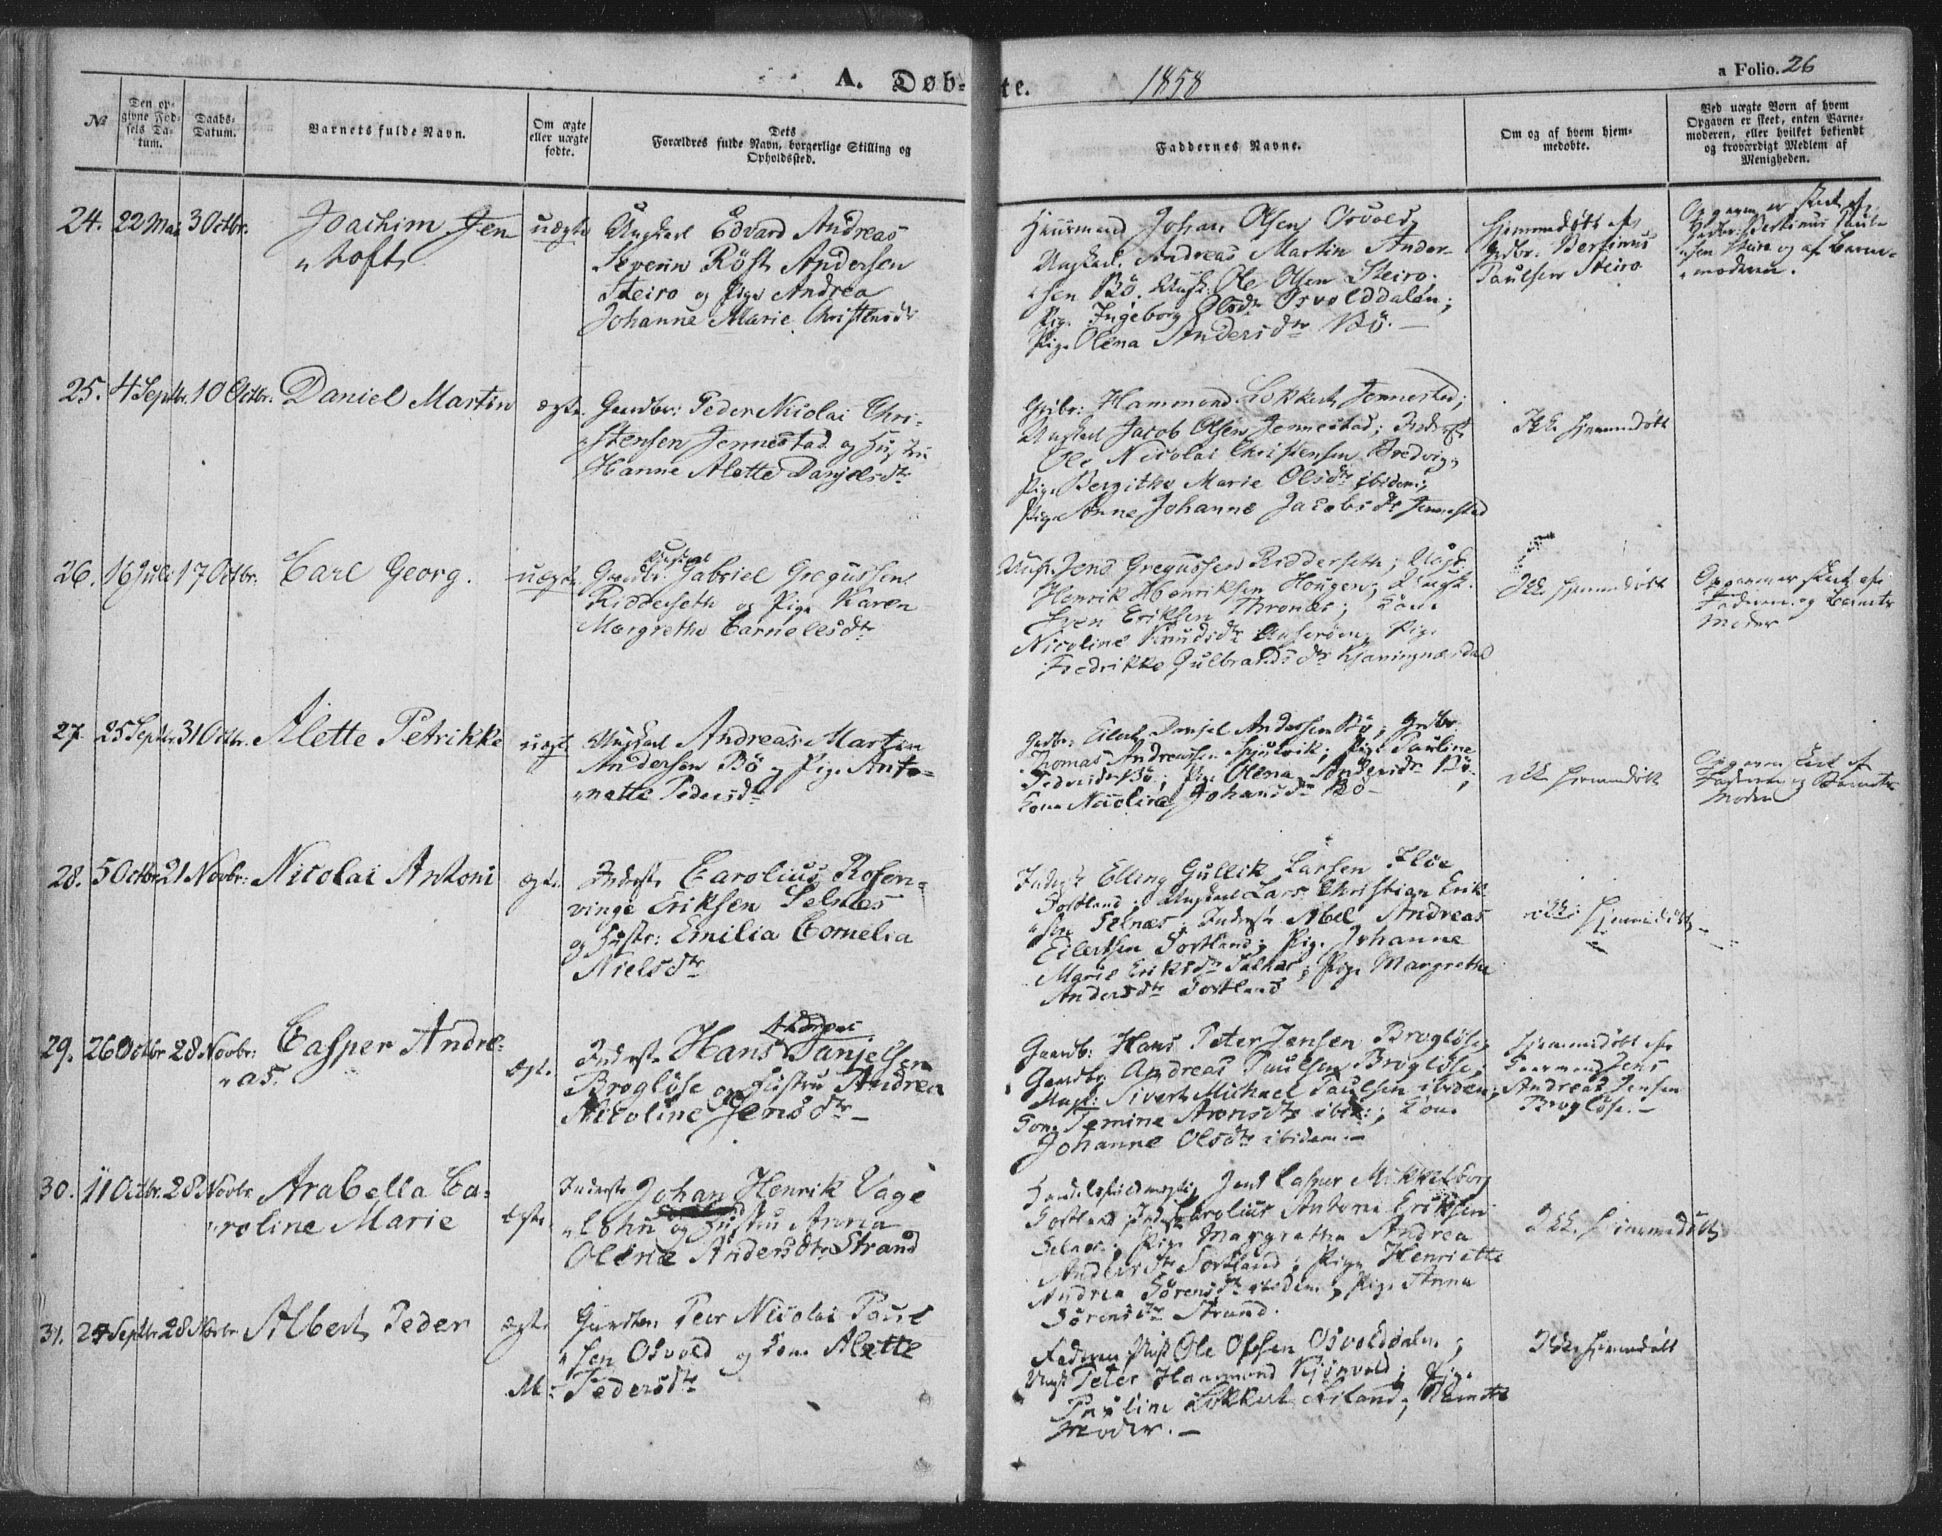 A. Døb-
te.
1858
a Folio. 26
№
Den op-
givne Fød-
sels Da-
tum.
Daabs-
Datum.
Barnets fulde Navn.
Om ægte
eller uægte
fødte.
Dets
Forældres fulde Navn, borgerlige Stilling og
Opholdssted.
Faddernes Navne.
Om og af hvem hjem-
medøbte.
Ved uægte Børn af hvem
Opgaven er skeet, enten Barne-
moderen, eller hvilket bekjendt
og troværdigt Medlem af
Menigheden.
24. 22 Mai 3 Octbr. Joachim Jen
"toft
uægte
Ungkarl Edvard Andreas
Severin Röst Andersen
Steiro og Pige Andrea
Johanne Marie Christensdr
Huusmand Johan Olsen Osvold,
Ungkarl. Andreas Martin Ander-
sen Bö. Ungk. Ole Olsen Steiro.
Pig. Ingeborg Olsdr Osvolddalen;
Pige Olena Andersdtr Bö. —
Hjemmedøbt af
Grdbr. Bertinus
Paulsen Steiro
Opgaven er skeet af
Grdbr. Bertinus Paul-
sen Steiro og af Barne-
moderen.
25. 4 Septbr. 10 Octbr. Daniel Martin
ægte.
Gaardbr: Peder Nicolai Chri-
"stensen Jennestad og Hustru
Hanne Alette Danjelsdtr
Grdbr: Hammond Lokkert Jennestad;
Ungkarl Jacob Olsen Jennestad;
Ole Nicolai Christensen Bredvig;
Pige Bergithe Marie Olsdtr ibidem;
Pige Anne Johanne Jacobsdtr Jennestad
Ikke hjemmedøbt
26. 16 Juli 17 Octbr. Carl Georg.
uægte
Ungkarl
Gaardbr. Gabriel Gregussen
Ridderseth og Pige Karen
Margrethe Cornelisdtr
Ungk. Jens Gregussen Ridderseth; Ungk.
Henrik Henriksen Hougen; Ungk.
Sven Eriksen Thronæs; Kone
Nicoline Knudsdtr; Pige
Fredrikke Gulbrandsdtr
Ikke hjemmedøbt
Opgaven er skeet af
Faderen og Barnets
Moder
27. 25 Septbr. 31 Octbr. Alette Petrikke
uægte
Ungkarl Andreas Martin
Andersen Bö og Pige Anto-
"nette Pedersdtr
Grdbr: Eilert Danjel Andersen Bö; Grdbr
Thomas Andreassen; Pige Pauline
Bö; Pige Olena Andersdtr Bö;
Kone Nicolina Johansdtr Bö
Ikke hjemmedøbt
Opgaven skeet af
Faderen og Barnets
Moder
28. 5 Octbr. 21 Novbr: Nicolai Antoni
ægte
Inderste Carolius Rosen-
vinge Eriksen Selnæs
og Hustr: Emilia Cornelia
Nielsdtr
Inderst Elling Gullik Larsen
Sortland; Ungkarl Lars Christian Erik-
"sen Selnæs; Inderste Abel Andreas
Eilertsen Sortland; Pige Johanne
Marie Eriksdtr Selnæs; Pige Margrethe
Andersdtr Sortland
Ikke hjemmedøbt
29. 26 Octbr 28 Novbr: Casper Andre-
"as.
ægte.
Andreas
Inderste Hans Danjelsen
Brogløse og Hustru Andrea
Nicoline Jensdtr —
Gaardb: Hans Peter Jensen Brogløse,
Gaardbr; Andreas Paulsen Brogløse,
Ungk: Sivert Michael Paulsen ibidem;
Kone Jemine Aronsdtr ibid:; Kone
Johanne Olsdtr ibidem. —
Hjemmedøbt af
Jens
Andreas Jensen
Brogløse. —
30. 11 Octbr. 28 Novbr Arabella Ca-
"roline Marie
ægte.
Inderste Johan Henrik Vage
og Hustru Anna
Oline Andersdtr Strand
Jens Casper Mikkelborg
Sortland; Carolius Antoni Eriksen
Selnæs; Pige Margrethe Andrea
Andersdtr Sortland; Pige Henriette
Andrea Sörensdtr ibidem; Pige Anna
Sörensdtr Strand.
Ikke hjemmedøbt
31. 24 Septbr 28 Novbr Albert Peder
ægte
Peer Nicolai Paul
"sen Osvold og Kone Alette
M: Pedersdtr
Faderen; Ungk Ole Olsen Osvolddalen;
Ungk Peter Hammond Kjönvold; Pige
Pauline Lokkert; Barnets
Moder. —
Ikke hjemmedøbt